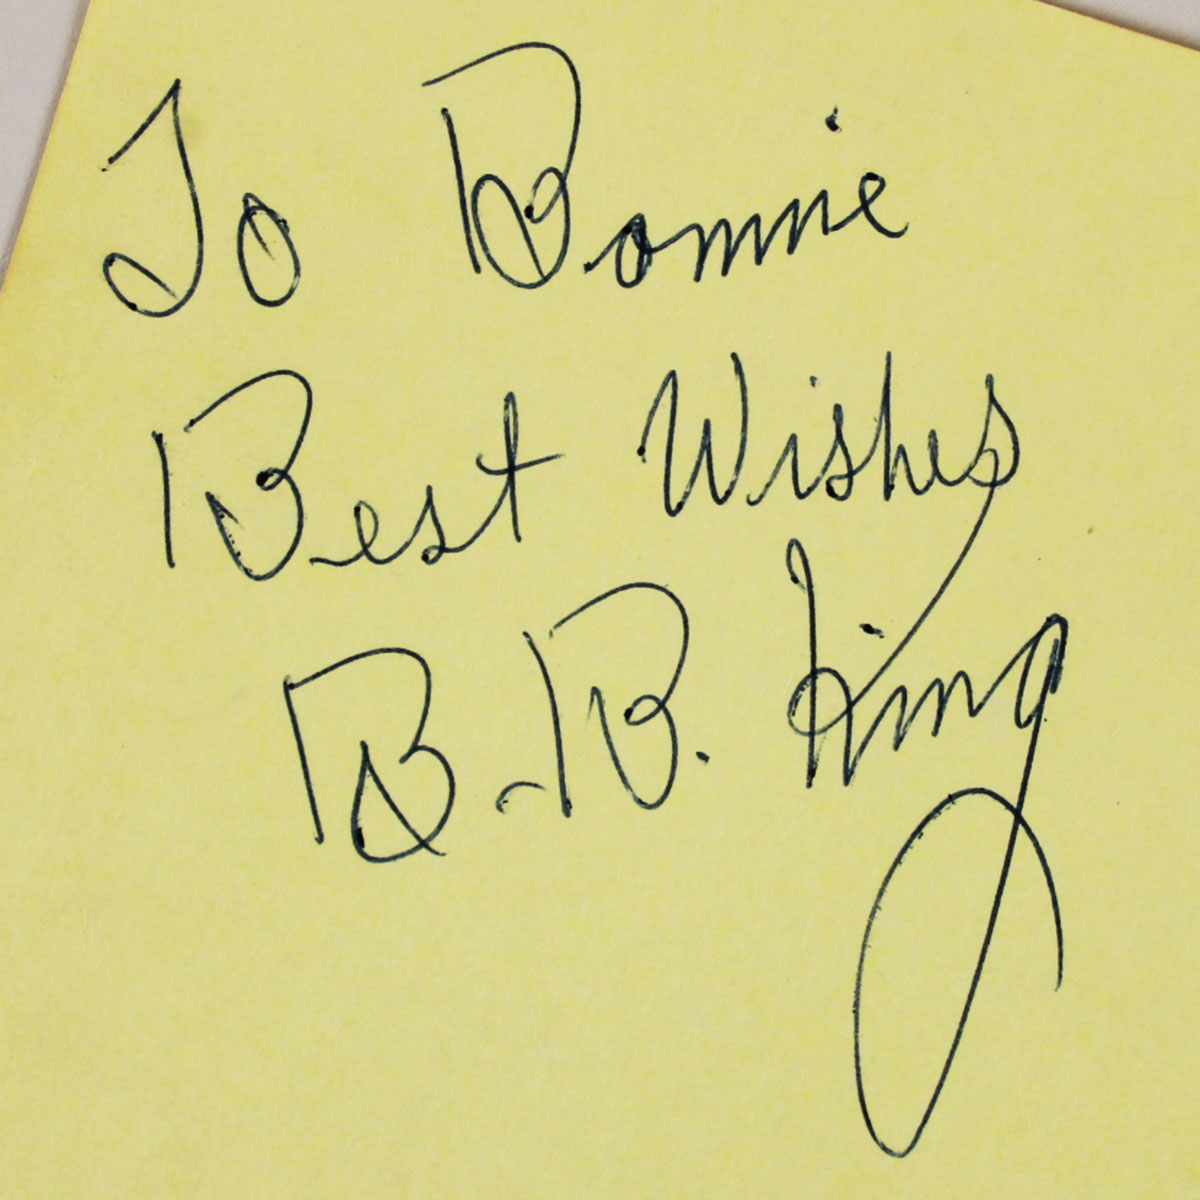 To Bonnie
Best Wishes
B.B. King